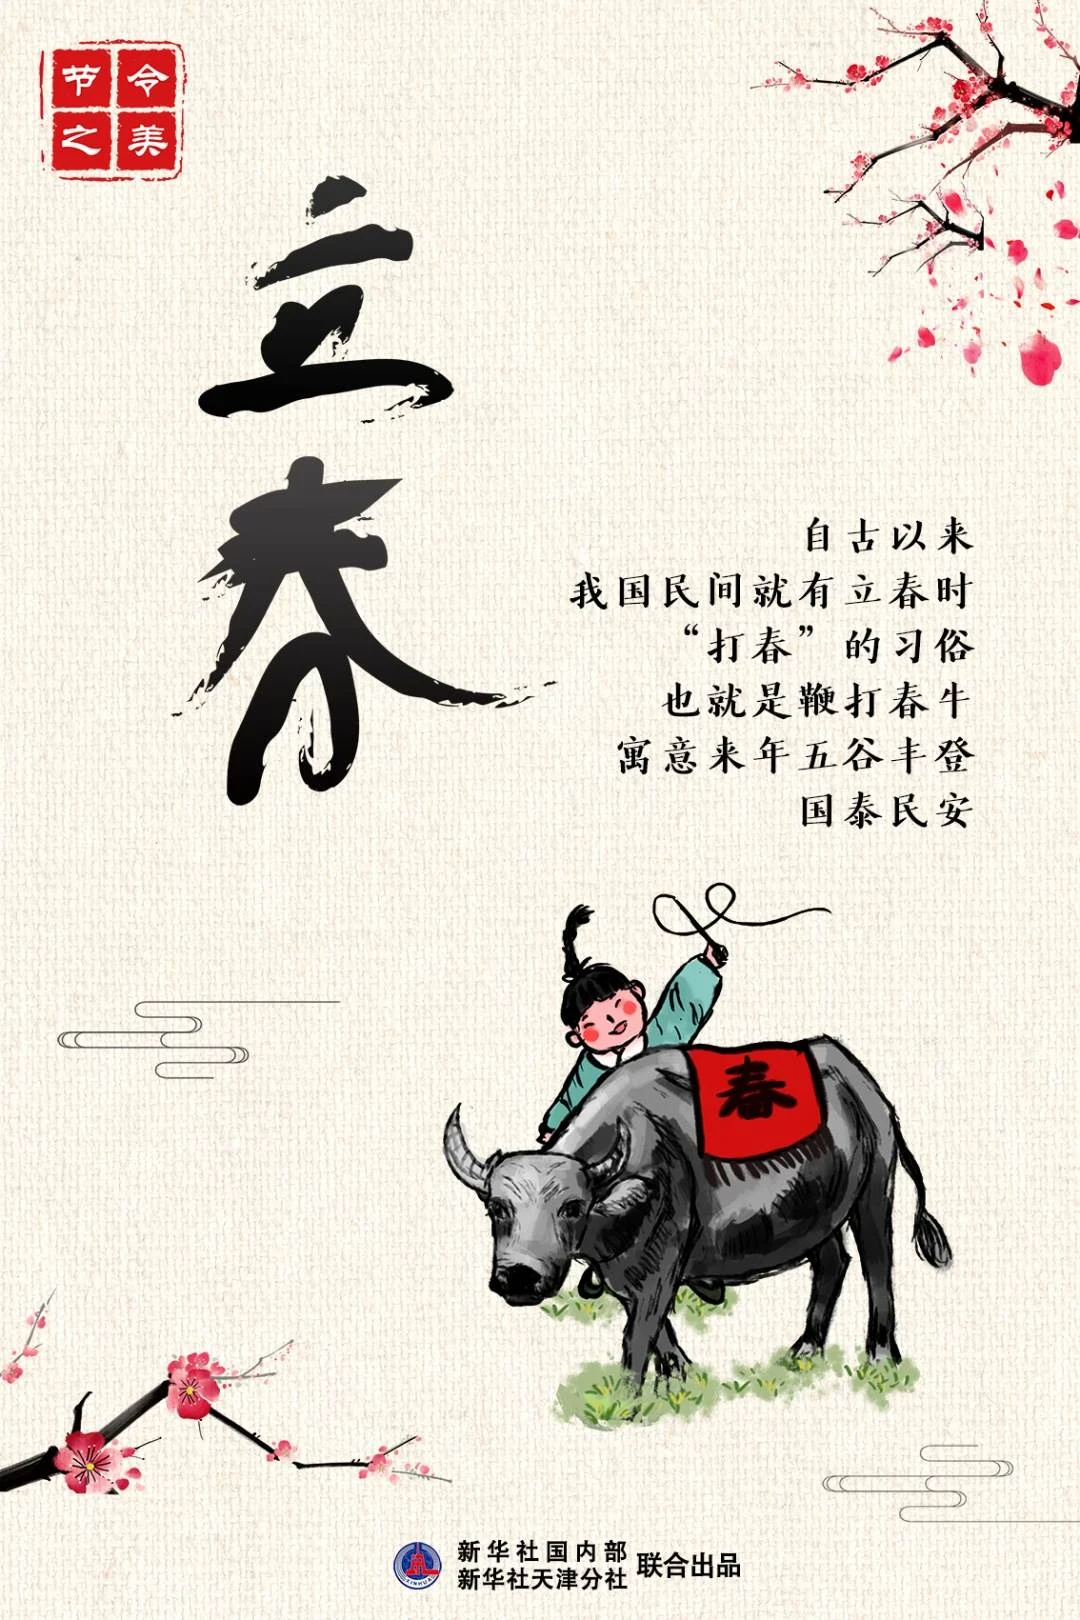 节令
之美
立春
自古以来
我国民间就有立春时
“打春”的习俗
也就是鞭打春牛
寓意来年五谷丰登
国泰民安
春
XINHUA
新华社国内部
新华社天津分社
联合出品